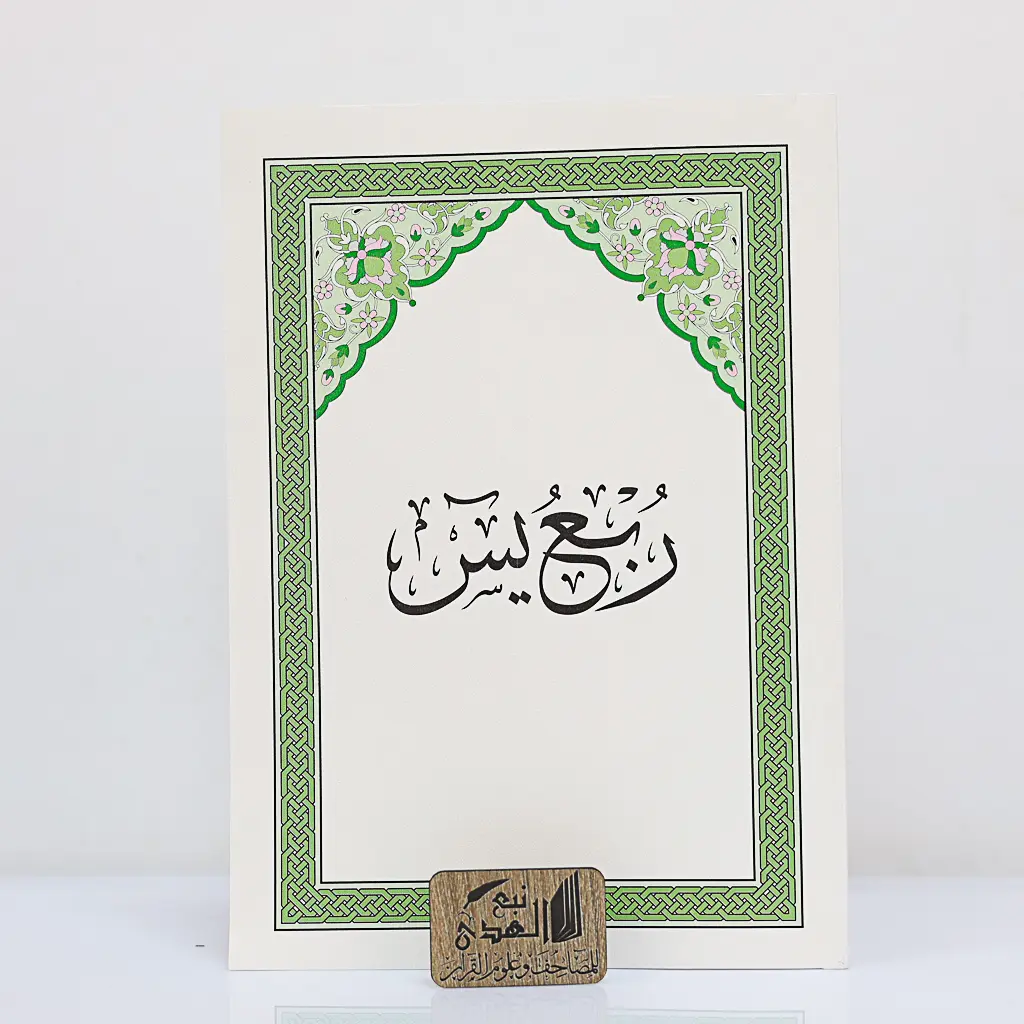 رُبْعُ يسٓ
نبع
الهدى
للمصاحف وعلوم القرآن